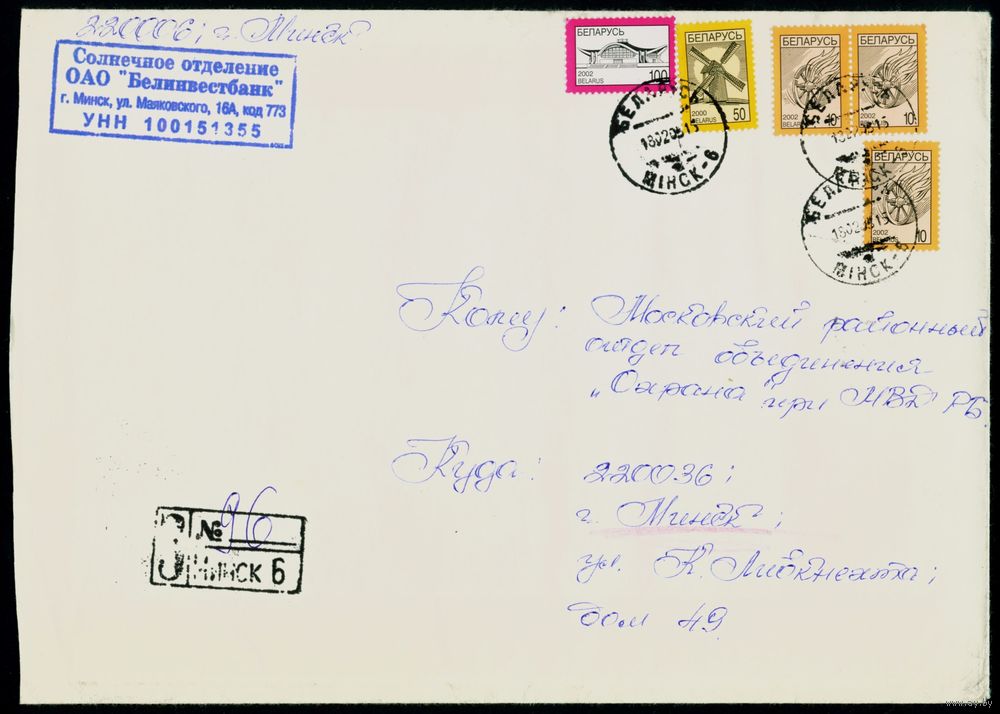 220006; г. Минск
Солнечное отделение
ОАО "Белинвестбанк"
г. Минск, ул. Маяковского, 16А, код 773
УНН 100151355
БЕЛАРУСЬ
2002
BELARUS
100
БЕЛАРУСЬ
2000
BELARUS
50
БЕЛАРУСЬ
2002
BELARUS
10
БЕЛАРУСЬ
2002
BELARUS
10
БЕЛАРУСЬ
2002
BELARUS
10
МІНСК-6
МІНСК-6
Кому: Московский районный
отдел объединения
„Охрана" при МВД РБ.
Куда: 220036;
г. Минск;
ул. К. Либкнехта;
дом 49
З № 96
МИНСК 6